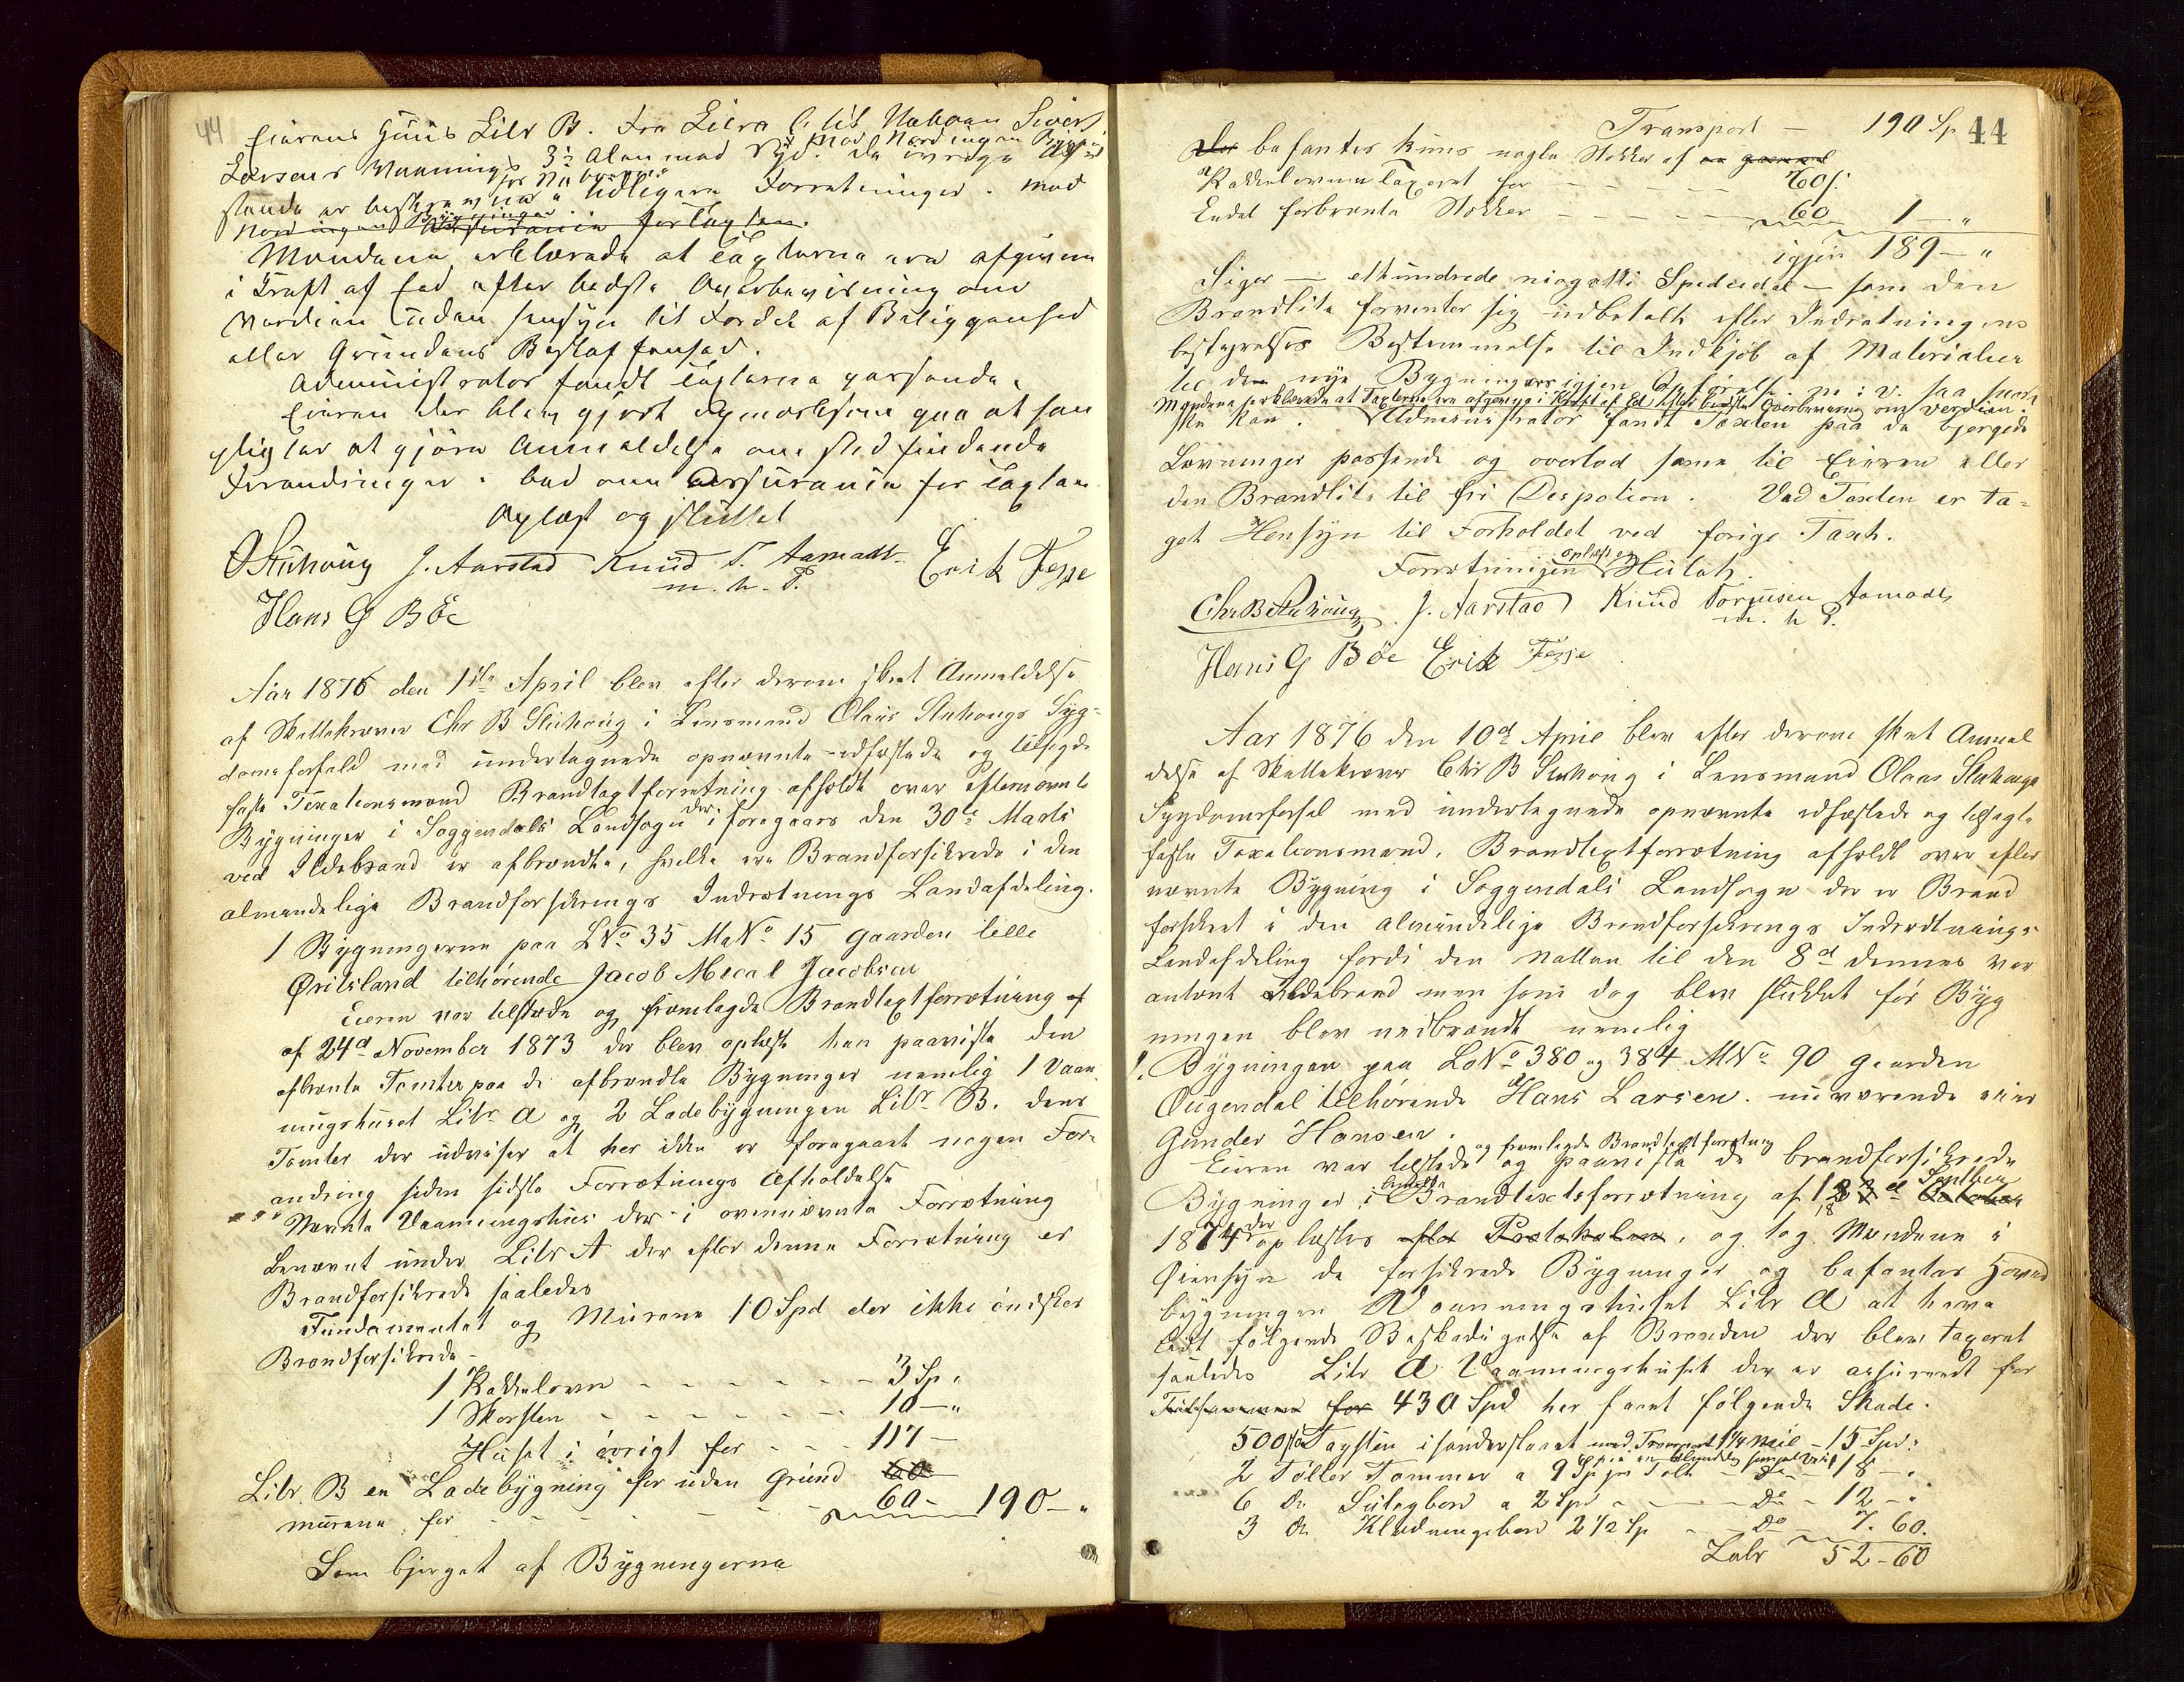 44
Eierens Huus Litr B. fra Litra C til Naboen Sivert
Larsens Vaaning 3½ Alen mod Syd. De øvrige
mod Nordingen Bygning
stande er beskrevne i tidligere Forretninger. mod
Nordingen Bygninger Assurance for Taxten.
Mændene erklærede at Taxterne ere afgivne
i Kraft af Eed efter bedste Overbeviisning om
Værdien uden Hensyn til Fordel af Beliggenhed
eller Grundens Beskaffenhed.
Administrator fandt Taxterne passende.
Eieren der blev gjort opmærksom paa at han
pligter at gjøre Anmeldelse om stedfindende
Forandringer. bad om Assurance for Taxten
Oplæst og sluttet
O Stuhoug J. Aarstad Knud T. Aamodt Erik Fesse
m. h. P.
Hans G Böe
Aar 1876 den 1ste April blev efter derom skeet Anmeldelse
af Skattekræver Chr B Stuhoug i Lensmand Olaus Stuhougs Syg=
doms forfald med undertegnede opnævnte edfæstede og tilsagte
faste Taxationsmænd Brandtaxtforretning afholdt over efternævnte
Bygninger i Soggendals Landsogn der i foregaars den 30te Marts
ved Ildebrand er afbrændte, hvilke ere Brandforsikrede i den
almindelige Brandforsikrings Indretnings Landafdeling.
1 Bygningerne paa LNo 35 MaNo 15 Gaarden lille
Øritsland tilhørende Jacob Mical Jacobsen
Eieren var tilstede og fremlagde Brandtaxtforretning af
af 24d November 1873 der blev oplæst han paaviste den
afbrente Tomter paa de afbrændte Bygninger nemlig 1 Vaan
ingshuset Litr A og 2 Ladebygningen Litr B. dens
Tomter der udviser at her ikke er foregaaet nogen For
andring siden sidste Forretnings Afholdelse
Nævnte Vaaningshus der i ovennævnte Forretning
benævnt under Litr A der efter denne Forretning er
Brandforsikrede saaledes
Fundamentet og Murene 10 Spd der ikke ønskes
Brandforsikrede -
1 Kakkelovn - - - - - - 3 Sp "
1 Skorsten - - - - - - 10 - "
Huset i øvrigt for - - - 117 -
Litr. B en Ladebygning for uden Grund 60
murene for - - - - - - 60 - 190 - "
Som bjerget af Bygningerne
44
Transport - 190 Sp
Der befantes kuns nogle Stokker af en gammel
Kakkelovn taxeret for - - - - - 60 s.
Endel forbrænte Stokker - - - - - 60 1 - "
igjen 189 - "
Siger - ethundrede niogotti Speciedal - som den
Brandlite forventer sig udbetalt efter Indretningens
bestyrelses Bestemmelse til Indkjøb af Materialier
til den nye Bygningers igjen Opførelse m: v. saa snart
Mændene erklærede at Taxterne ere afgivne i Kraft af Ed efter bedste Overbevisning om Verdien.
ske kan. Administrator fandt Taxten paa de bjergede
Levninger passende og overlod same til Eieren eller
den Brandlite til fri Despotion. Ved Taxten er ta=
get Hensyn til Forholdet ved forige Taxt.
Forretningen oplæst og Slutet.
Chr B Stuhoug. J. Aarstad Knud Torjusen Aamodt
m. h P.
Hans G Böe Erik Fesse
Aar 1876 den 10d April blev efter derom skeet Anmel
delse af Skattekræver Chr B Stuhoug i Lensmand Olaus Stuhougs
Sygdomsforfal med undertegnede opnævnte edfæstede og tilsagte
faste Taxationsmænd. Brandtaxtforretning afholdt over efter
nævnte Bygning i Soggendals Landsogn der er Brand
forsikret i den almindelige Brandforsikrings Indretnings
Landafdeling fordi den Natten til den 8d dennes var
antent Ildebrand men som dog blev slukket før Byg
ningen blev nedbrændt nemlig
1. Bygningen paa LøNo 380 og 384 MNo 90 Gaarden
Øugendal tilhørende Hans Larsen. nuværende eier
Gunder Hansen.
og fremlagde Brandtaxtforretning
Eieren var tilstede og paaviste de brandforsikrede
Bygninger i Brandtaxtsforretning af 18d Septber October
1874 der oplæstes efter Protokolen, og tog Mændene i
Øiensyn de forsikrede Bygninger og befantes Hoved
bygningen Vaaningshuset Litr A at have
lidt følgende Beskadigelse af Branden der blev taxeret
saaledes Litr A Vaaningshuset der er assureret for
Tilsammen for 430 Spd her faaet følgende Skade.
500 stk Tagsten isønderslaaet med Transport 1¼ Meil - 15 Spd:
2 Tølter Tømmer a 9 Sp pr Tolt - Do - 18 - "
6 do Sulegbord a 2 Spd - - - Do - 12 - "
3 do Klædningsbord 2½ Sp - - Do 7. 60.
Latr 52 - 60